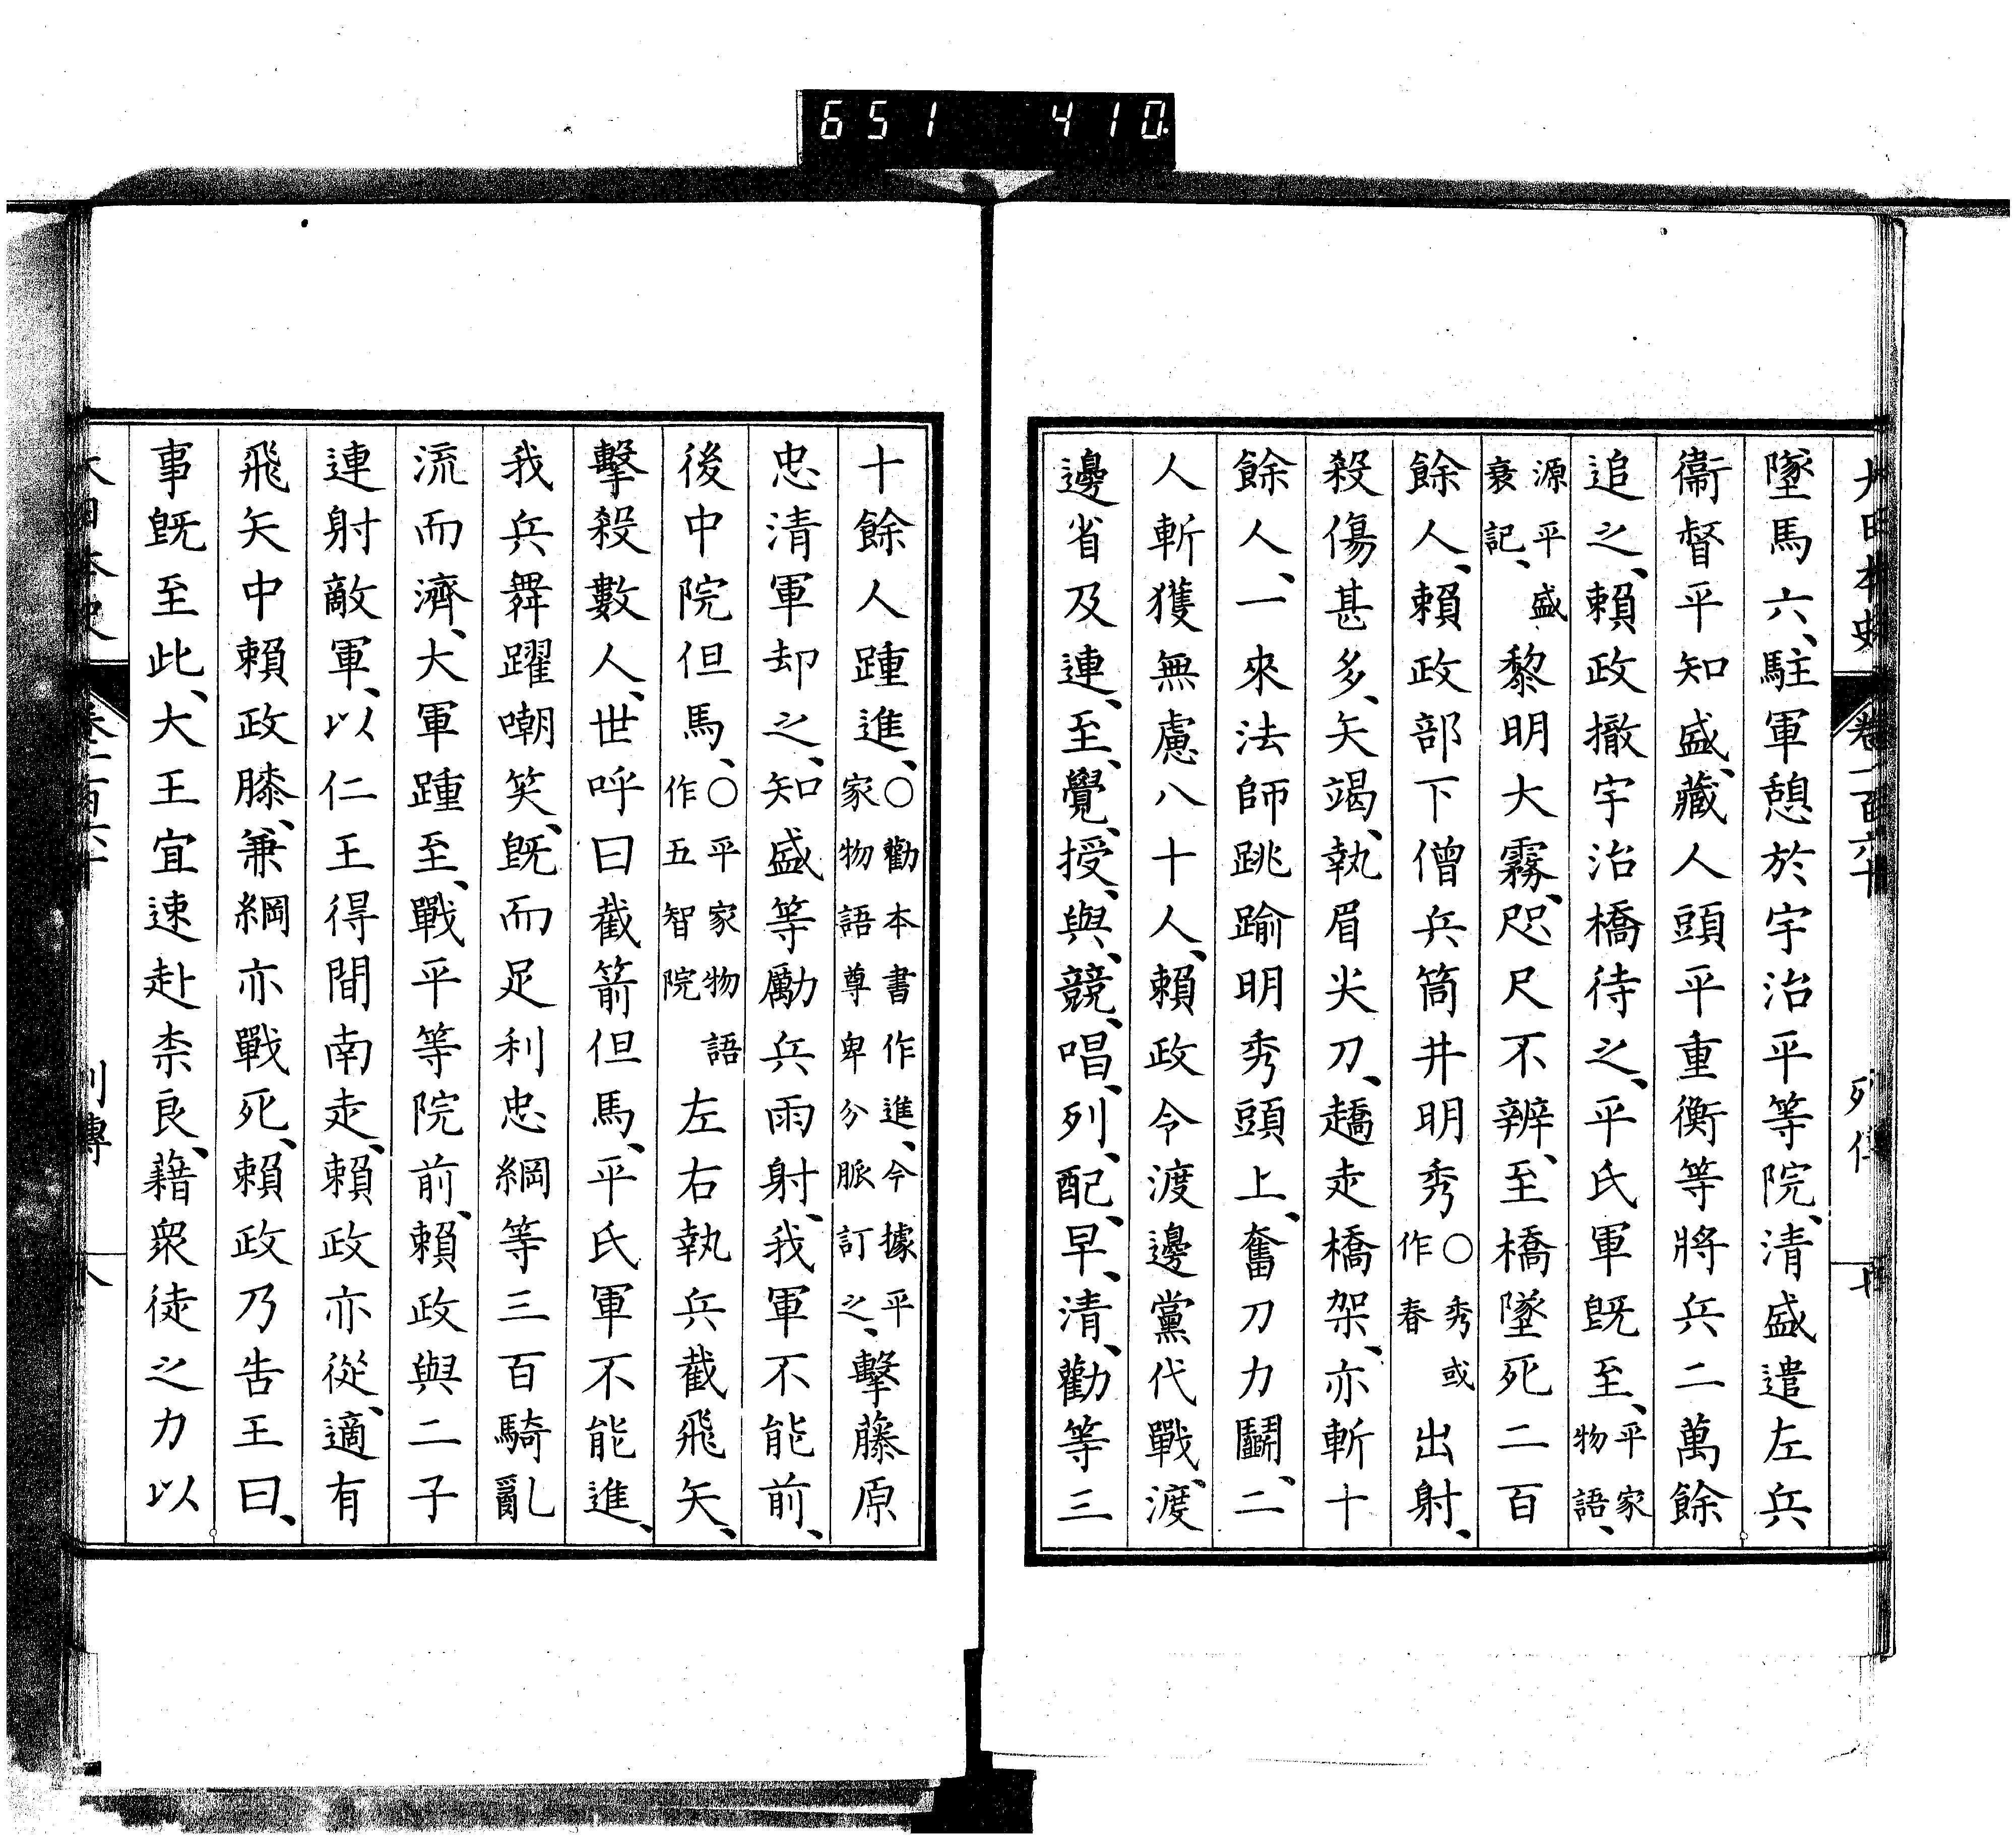 651 410.
大日本史 卷一百六十 列傳 七
墜馬六、駐軍憩於宇治平等院、清盛遣左兵
衞督平知盛、藏人頭平重衡等將兵二萬餘
追之、賴政撤宇治橋待之、平氏軍旣至、平家物語、
源平盛衰記、黎明大霧、咫尺不辨、至橋墜死二百
餘人、賴政部下僧兵筒井明秀○秀或作春出射、
殺傷甚多、矢竭、執眉尖刀、趫走橋架、亦斬十
餘人、一來法師跳踰明秀頭上、奮刀力鬭、二
人斬獲無慮八十人、賴政令渡邊黨代戰、渡
邊省及連、至、覺、授、與、競、唱、列、配、早、清、勸等三
十餘人踵進、○勸本書作進、今據平家物語尊卑分脈訂之、擊藤原
忠清軍却之、知盛等勵兵雨射、我軍不能前、
後中院但馬、○平家物語作五智院左右執兵截飛矢、
擊殺數人、世呼曰截箭但馬、平氏軍不能進、
我兵舞躍嘲笑、旣而足利忠綱等三百騎亂
流而濟、大軍踵至、戰平等院前、賴政與二子
連射敵軍、以仁王得間南走、賴政亦從、適有
飛矢中賴政膝、兼綱亦戰死、賴政乃告王曰、
事旣至此、大王宜速赴柰良、藉衆徒之力以
大日本史 卷一百六十 列傳 八